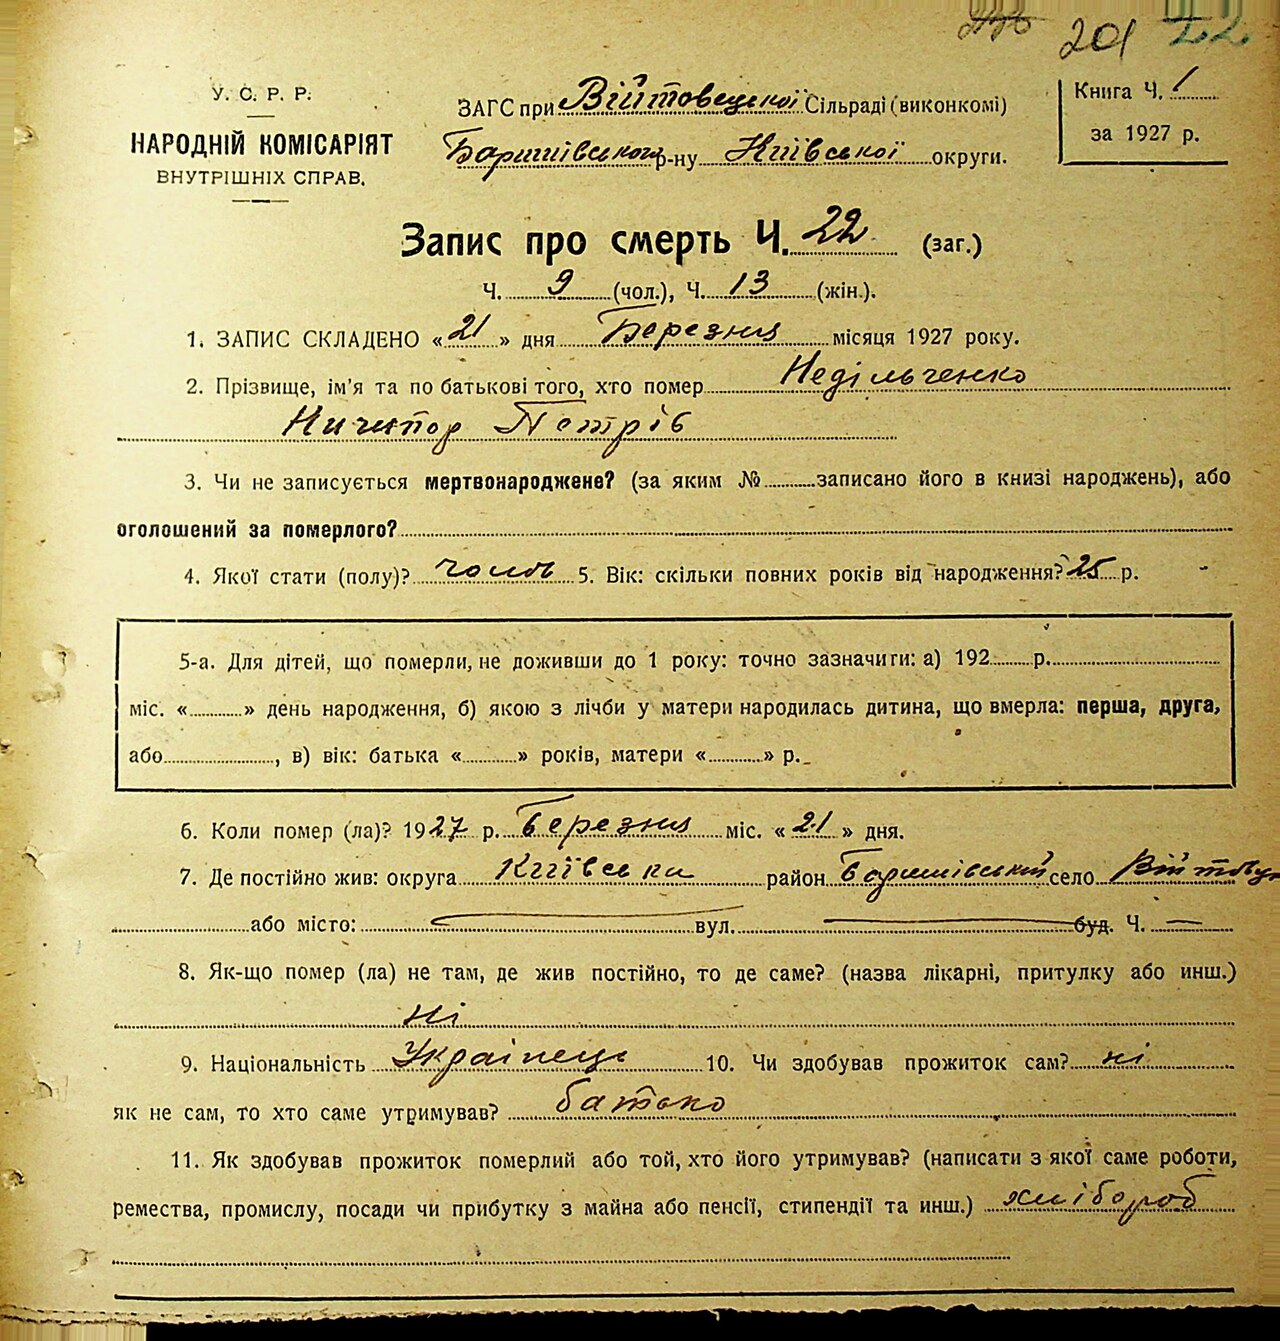 201
У. С. Р. Р.
НАРОДНІЙ КОМІСАРІЯТ
ВНУТРІШНІХ СПРАВ.
ЗАГС при Війтовецької Сільраді (виконкомі)
Баришівського р-ну Київської округи.
Книга Ч. 1
за 1927 р.
Запис про смерть Ч. 22 (заг.)
Ч. 9 (чол.), Ч. 13 (жін.).
1. ЗАПИС СКЛАДЕНО « 21 » дня Березня місяця 1927 року.
2. Прізвище, ім'я та по батькові того, хто помер Недільченко
Ничипор Петрів
3. Чи не записується мертвонароджене? (за яким № записано його в книзі народжень), або
оголошений за померлого?
4. Якої стати (полу)? чолов 5. Вік: скільки повних років від народження? 25 р.
5-а. Для дітей, що померли, не доживши до 1 року: точно зазначити: а) 192 р.
міс. « » день народження, б) якою з лічби у матери народилась дитина, що вмерла: перша, друга,
або , в) вік: батька « » років, матери « » р.
6. Коли помер (ла)? 1927 р. Березня міс. « 21 » дня.
7. Де постійно жив: округа Київська район Баришівський село Війтовці
або місто: — вул. — буд. Ч. —
8. Як-що помер (ла) не там, де жив постійно, то де саме? (назва лікарні, притулку або инш.)
ні
9. Національність Українець 10. Чи здобував прожиток сам? ні
як не сам, то хто саме утримував? батько
11. Як здобував прожиток померлий або той, хто його утримував? (написати з якої саме роботи,
ремества, промислу, посади чи прибутку з майна або пенсії, стипендії та инш.) хлібороб